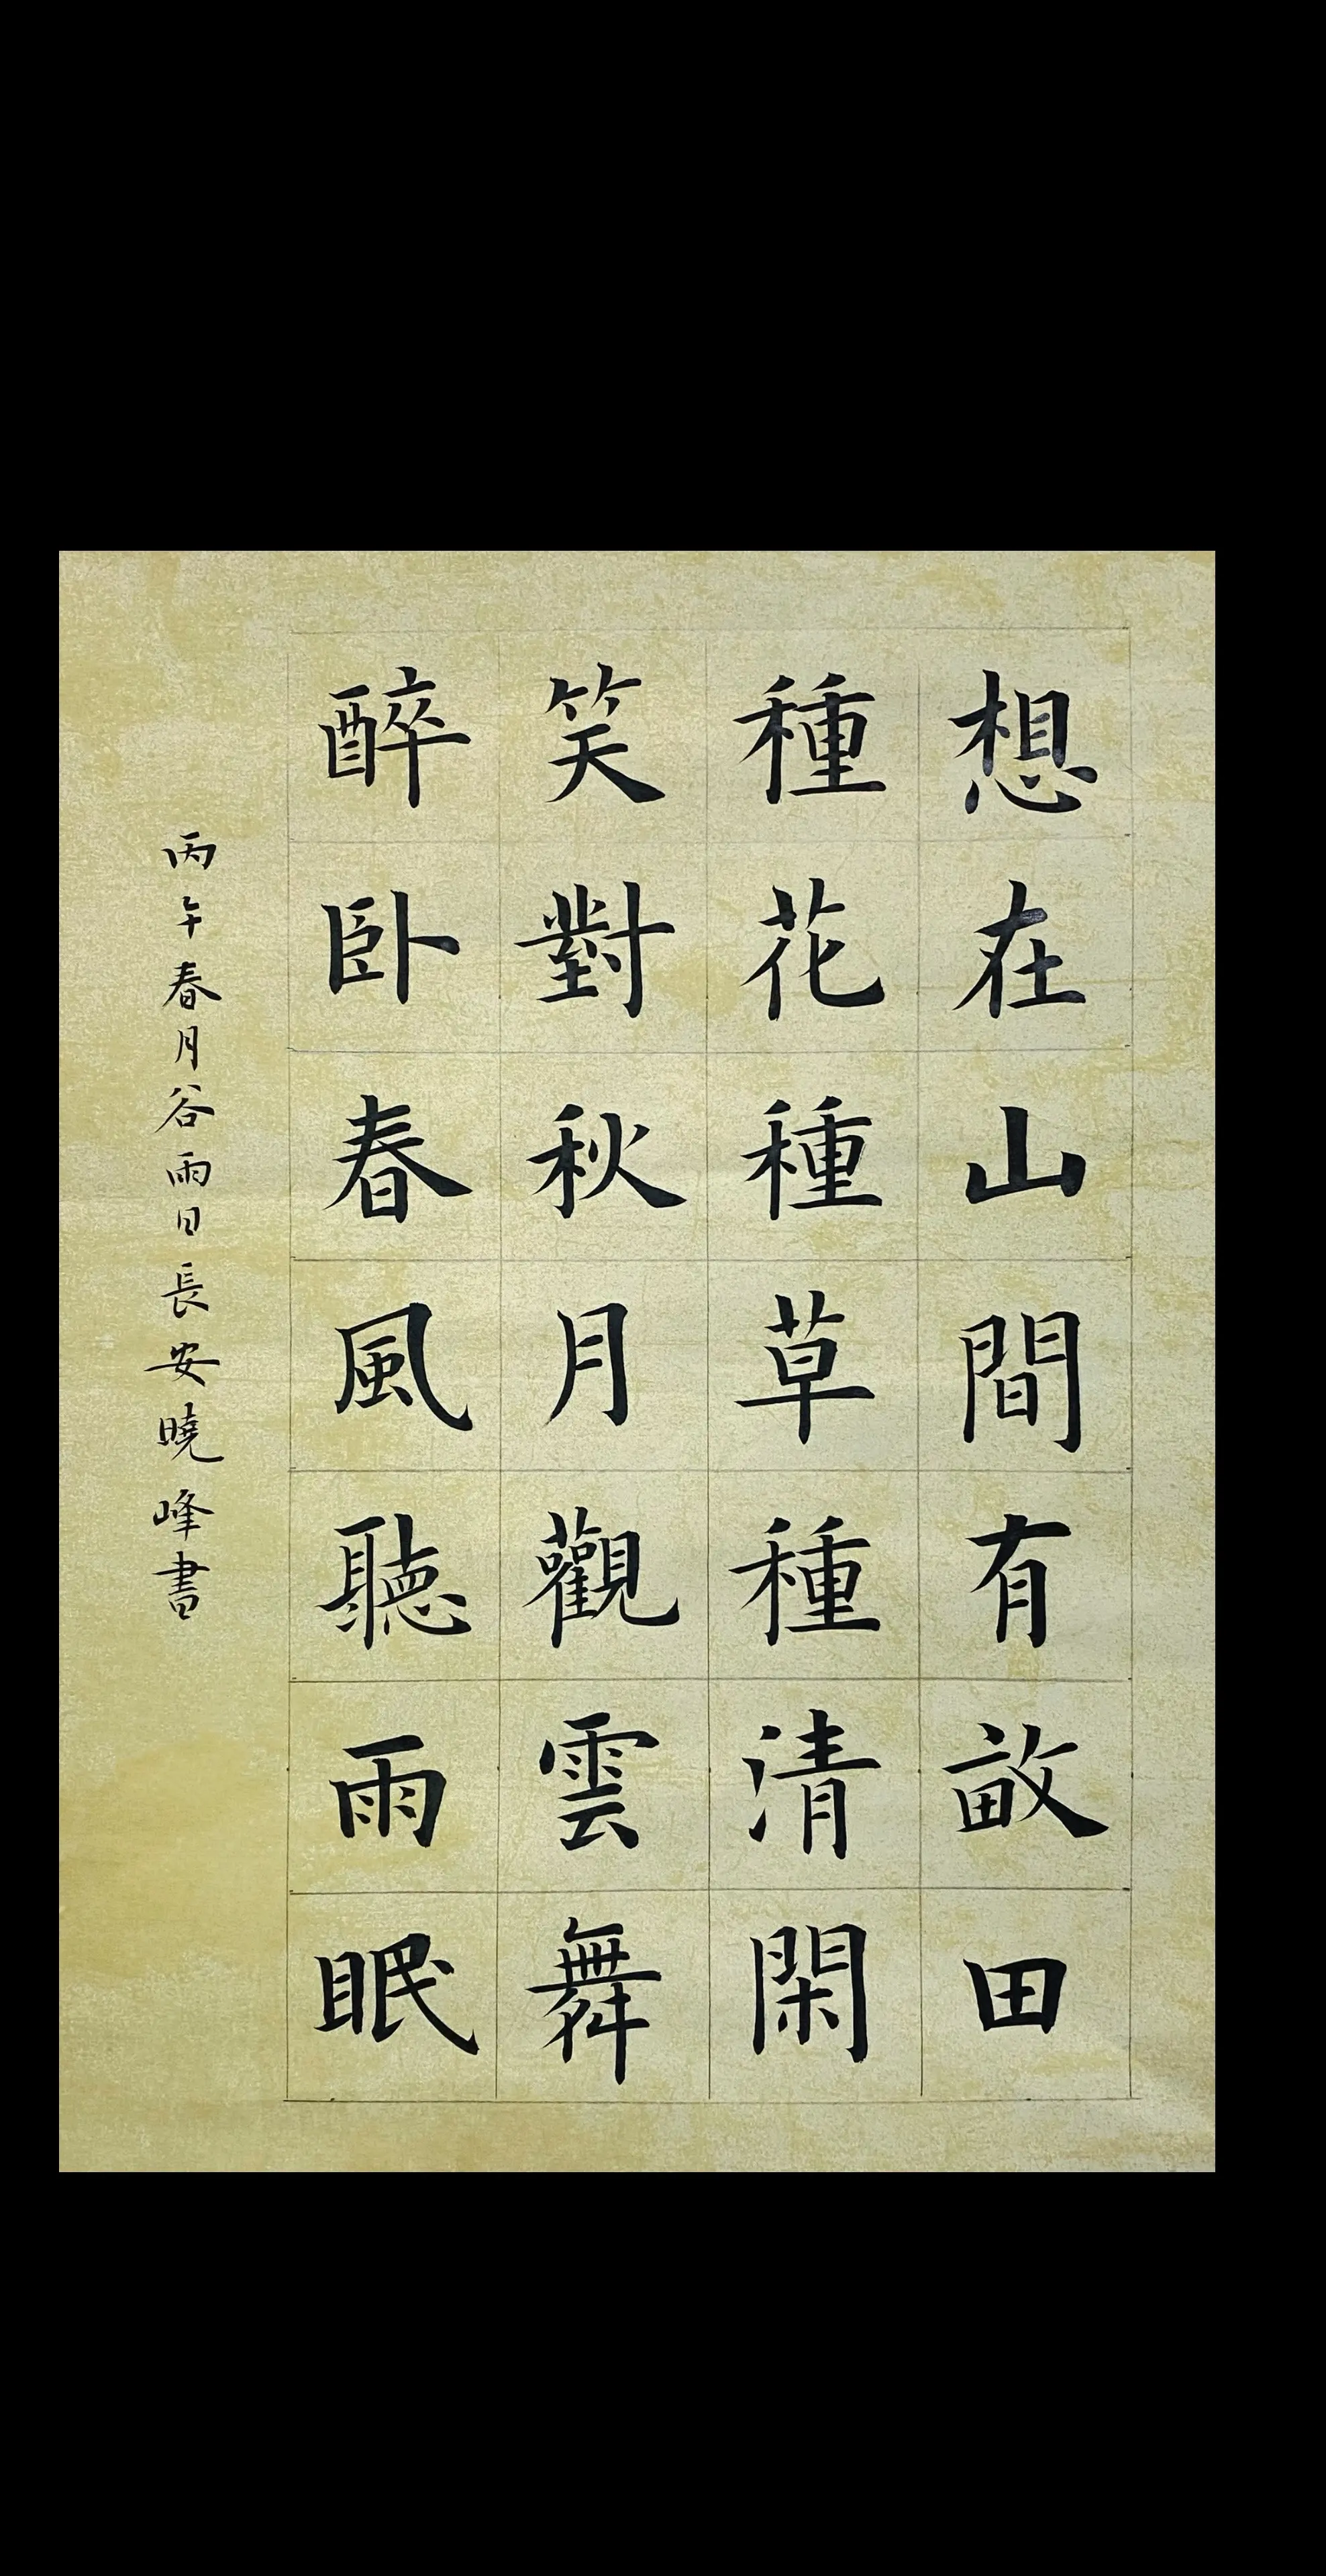 想在山間有畝田
種花種草種清閑
笑對秋月觀雲舞
醉卧春風聽雨眠
丙午春月谷雨日長安曉峰書